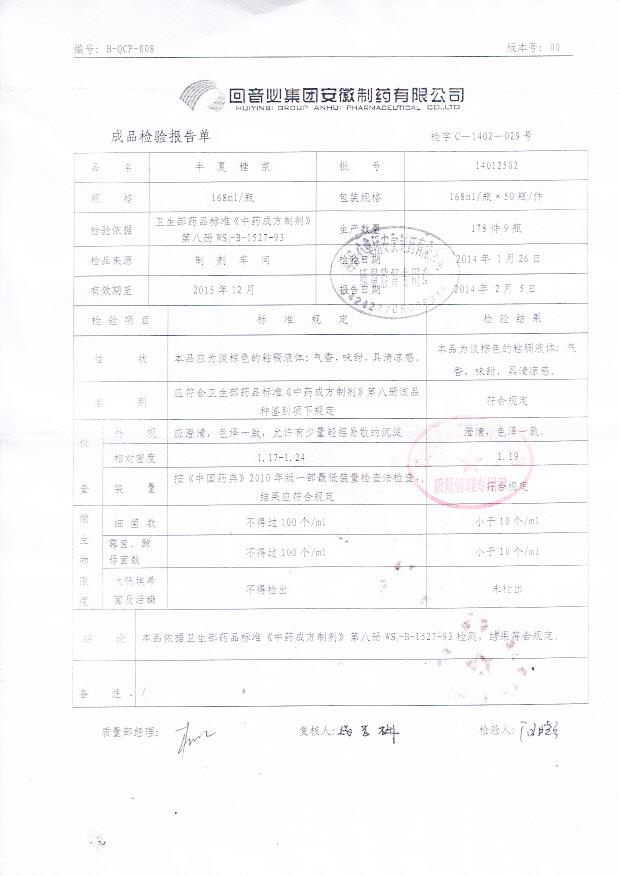 编号: B-QCP-008
版本号: 00
回音必集团安徽制药有限公司
HUIYINBI GROUP ANHUI PHARMACEUTICAL CO.,LTD
成品检验报告单
检字 C—1402—029 号
品 名 半 夏 糖 浆 批 号 14012502
规 格 168ml/瓶 包装规格 168ml/瓶×50瓶/件
检验依据 卫生部药品标准《中药成方制剂》
第八册 WS₃-B-1527-93 生产数量 178 件 9 瓶
检品来源 制 剂 车 间 检验日期 2014 年 1 月 26 日
有效期至 2015 年 12 月 报告日期 2014 年 2 月 5 日
检 验 项 目 标 准 规 定 检 验 结 果
性 状 本品应为淡棕色的粘稠液体;气香,味甜,具清凉感。 本品为淡棕色的粘稠液体;气
香,味甜,具清凉感。
鉴 别 应符合卫生部药品标准《中药成方制剂》第八册该品
种鉴别项下规定 符合规定
检 查
外 观 应澄清,色泽一致,允许有少量轻摇易散的沉淀 澄清,色泽一致。
相对密度 1.17-1.24 1.19
装 量 按《中国药典》2010 年版一部最低装量检查法检查,
结果应符合规定 符合规定
微生物限度
细 菌 数 不得过 100 个/ml 小于 10 个/ml
霉菌、酵
母菌数 不得过 100 个/ml 小于 10 个/ml
大肠埃希
菌及活螨 不得检出 未检出
结 论 本品依据卫生部药品标准《中药成方制剂》第八册 WS₃-B-1527-93 检测,结果符合规定。
备 注 /
质量管理专用章
质量部经理:
复核人:
检验人: